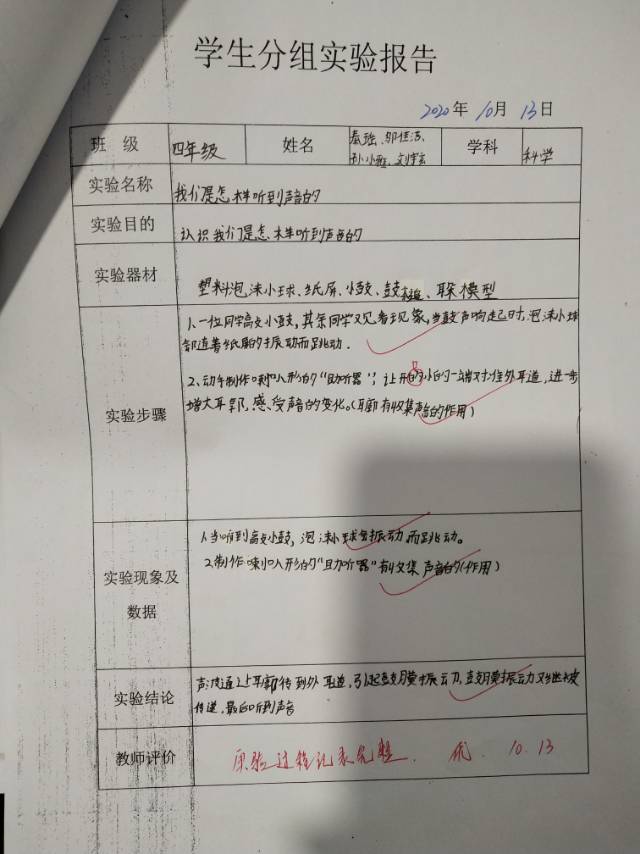 学生分组实验报告
2020年 10月 13日
班 级 四年级 姓名 秦强、邹佳洁、 学科 科学
孙小雅、刘宇宏
实验名称 我们是怎样听到声音的
实验目的 认识我们是怎样听到声音的
实验器材 塑料泡沫小球、纸屏、小鼓、鼓槌、耳朵模型
1、一位同学敲小鼓，其余同学观看现象，当鼓声响起时，泡沫小球
都连着纸屏的振动而跳动.
实验步骤
2、动手制作喇叭形的“助听器”；让开的小的一端对准外耳道，进一步
增大耳郭，感受声音的变化。(耳郭有收集声音的作用)
1.当听到敲小鼓，泡沫小球会振动而跳动。
2.制作喇叭形的“助听器”有收集声音的(作用)
实验现象及
数据
实验结论 声波通过耳郭传到外耳道，引起鼓膜振动，鼓膜振动又继续被
传递，最后听到声音
教师评价 实验过程记录完整. 优. 10.13